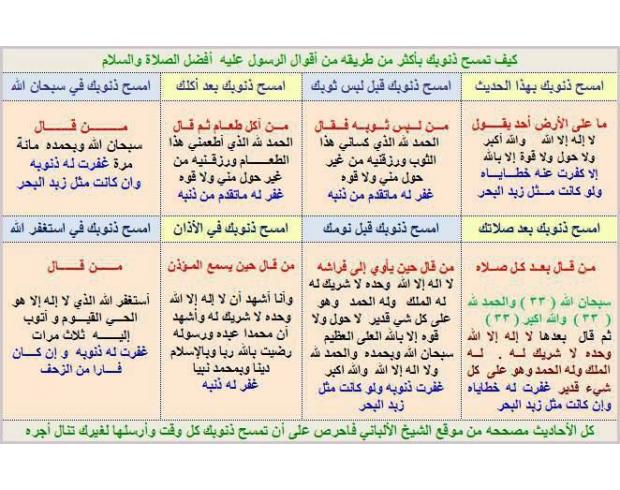 كيف تمسح ذنوبك بأكثر من طريقه من أقوال الرسول عليه أفضل الصلاة والسلام
امسح ذنوبك بهذا الحديث
ما على الأرض أحد يقــول
لا إله إلا الله والله أكبر
ولا حول ولا قوة إلا بالله
إلا كفرت عنه خطايــاه
ولو كانت مــثل زبد البحر
امسح ذنوبك قبل لبس ثوبك
مــن لــبس ثــوبــه فــقــال
الحمد لله الذي كساني هذا
الثوب ورزقنيه من غير
حول مني ولا قوه
غفر له ماتقدم من ذنبه
امسح ذنوبك بعد أكلك
مــن أكل طعــام ثــم قــال
الحمد لله الذي أطعمني هذا
الطعــــام ورزقنيه من
غير حول مني ولا قوه
غفر له ماتقدم من ذنبه
امسح ذنوبك في سبحان الله
مــــن قــــــال
سبحان الله وبحمده مائة
مرة غفرت له ذنوبه
وان كانت مثل زبد البحر
امسح ذنوبك بعد صلاتك
مـن قـال بعـد كـل صـلاه
سبحان الله ( ٣٣ ) والحمد لله
( ٣٣ ) والله اكبر ( ٣٣ )
ثم قال بعدها لا إله إلا الله
وحده لا شريك لـه . لـه
الملك وله الحمد وهو على كل
شيء قدير غفرت له خطاياه
وإن كانت مثل زبد البحر
امسح ذنوبك قبل نومك
من قال حين يأوي إلى فراشه
لا اله إلا الله وحده لا شريك له
له الملك وله الحمد وهو
على كل شي قدير لا حول ولا
قوه إلا بالله العلى العظيم
سبحان الله وبحمده والحمد لله
ولا إله إلا الله والله أكبر
غفرت ذنوبه ولو كانت مثل
زبد البحر
امسح ذنوبك في الأذان
من قال حين يسمع المؤذن
وأنا أشهد أن لا إله إلا الله
وحده لا شريك له وأشهد
أن محمدا عبده ورسوله
رضيت بالله ربا وبالإسلام
دينا وبمحمد نبيا
غفر له ذنبه
امسح ذنوبك في استغفر الله
مــــن قــــــال
أستغفر الله الذي لا إله إلا هو
الحي القيــوم و أتوب
إليــــه ثلاث مرات
غفرت له ذنوبه و إن كــان
فــارا من الزحف
كل الأحاديث مصححه من موقع الشيخ الألباني فاحرص على أن تمسح ذنوبك كل وقت وأرسلها لغيرك تنال أجره